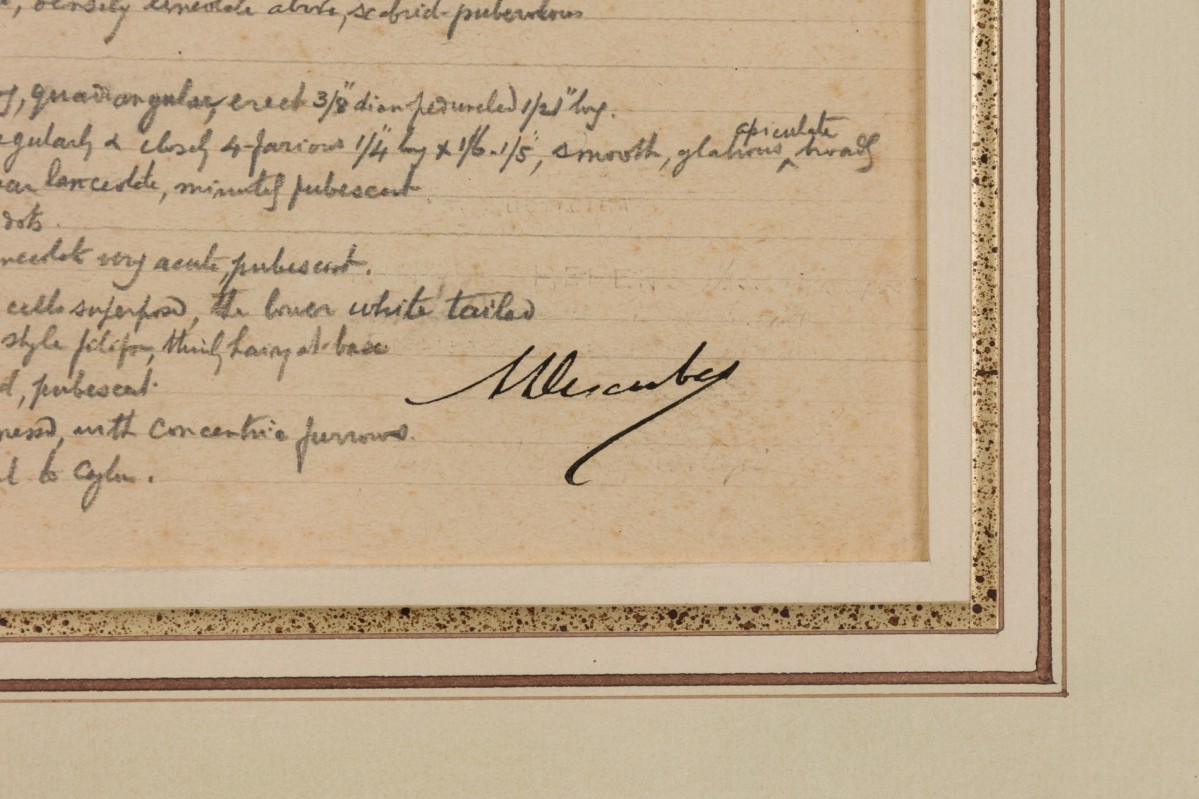 densely lineolate above, scabrid-puberulous
quadrangular, erect 3/8" diam peduncled 1/2" long.
regularly & closely 4-farious 1/4" long x 1/6-1/5", smooth, glabrous apiculate broadly
lanceolate, minutely pubescent.
dots.
very acute, pubescent.
cells superposed, the lower white tailed
style filiform, thinly hairy at base
pubescent.
with concentric furrows.
to Ceylon.